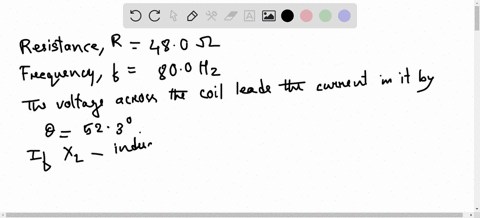 Resistance, R = 48.0 Ω
Frequency, f = 80.0 Hz
The voltage across the coil leads the current in it by
θ = 52.3°.
If X2 – indu